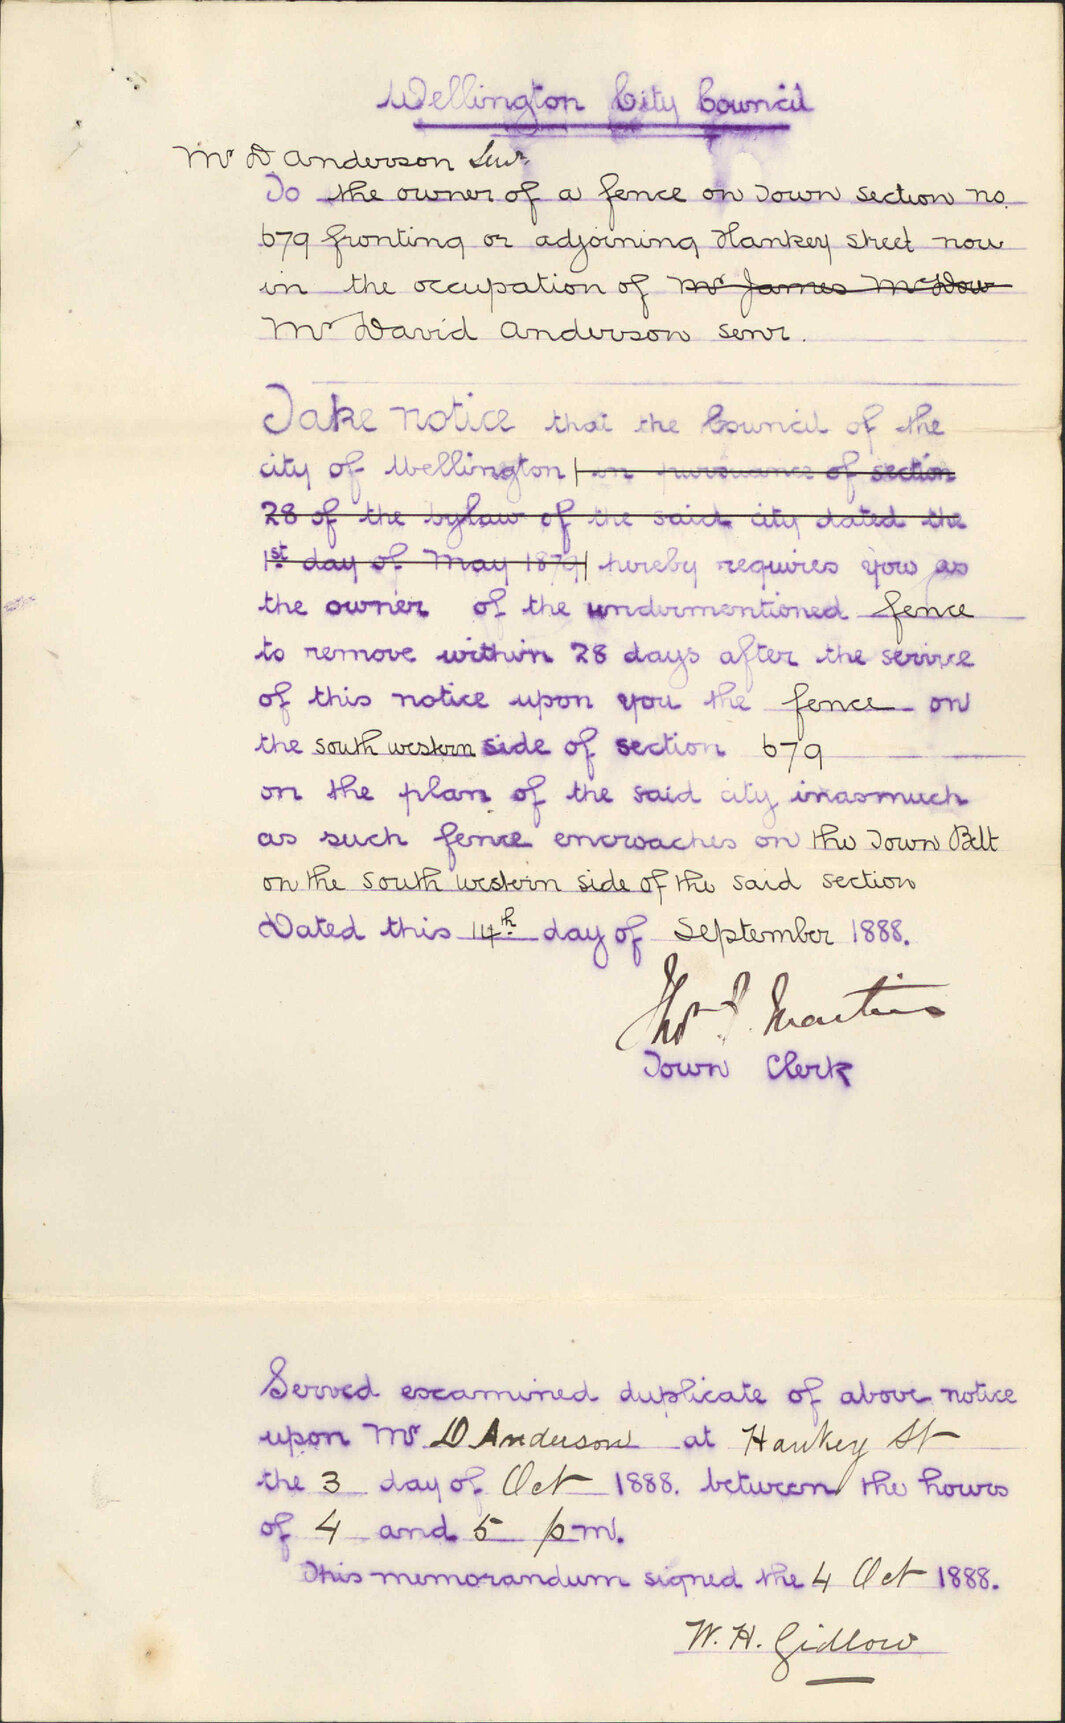 Wellington City Council
Mr D Anderson Senr.
To the owner of a fence on Town section no.
679 fronting or adjoining Hankey street now
in the occupation of Mr James McDow
Mr David Anderson senr.
Take notice that the Council of the
city of Wellington in pursuance of section
28 of the bylaw of the said city dated the
1st day of May 1879 hereby requires you as
the owner of the undermentioned fence
to remove within 28 days after the service
of this notice upon you the fence on
the south western side of section 679
on the plan of the said city inasmuch
as such fence encroaches on the Town Belt
on the south western side of the said section
Dated this 14th day of September 1888.
Thos. F. Martin
Town Clerk
Served examined duplicate of above notice
upon Mr D Anderson at Hankey St
the 3 day of Oct 1888. between the hours
of 4 and 5 pm.
This memorandum signed the 4 Oct 1888.
W. H. Gidlow